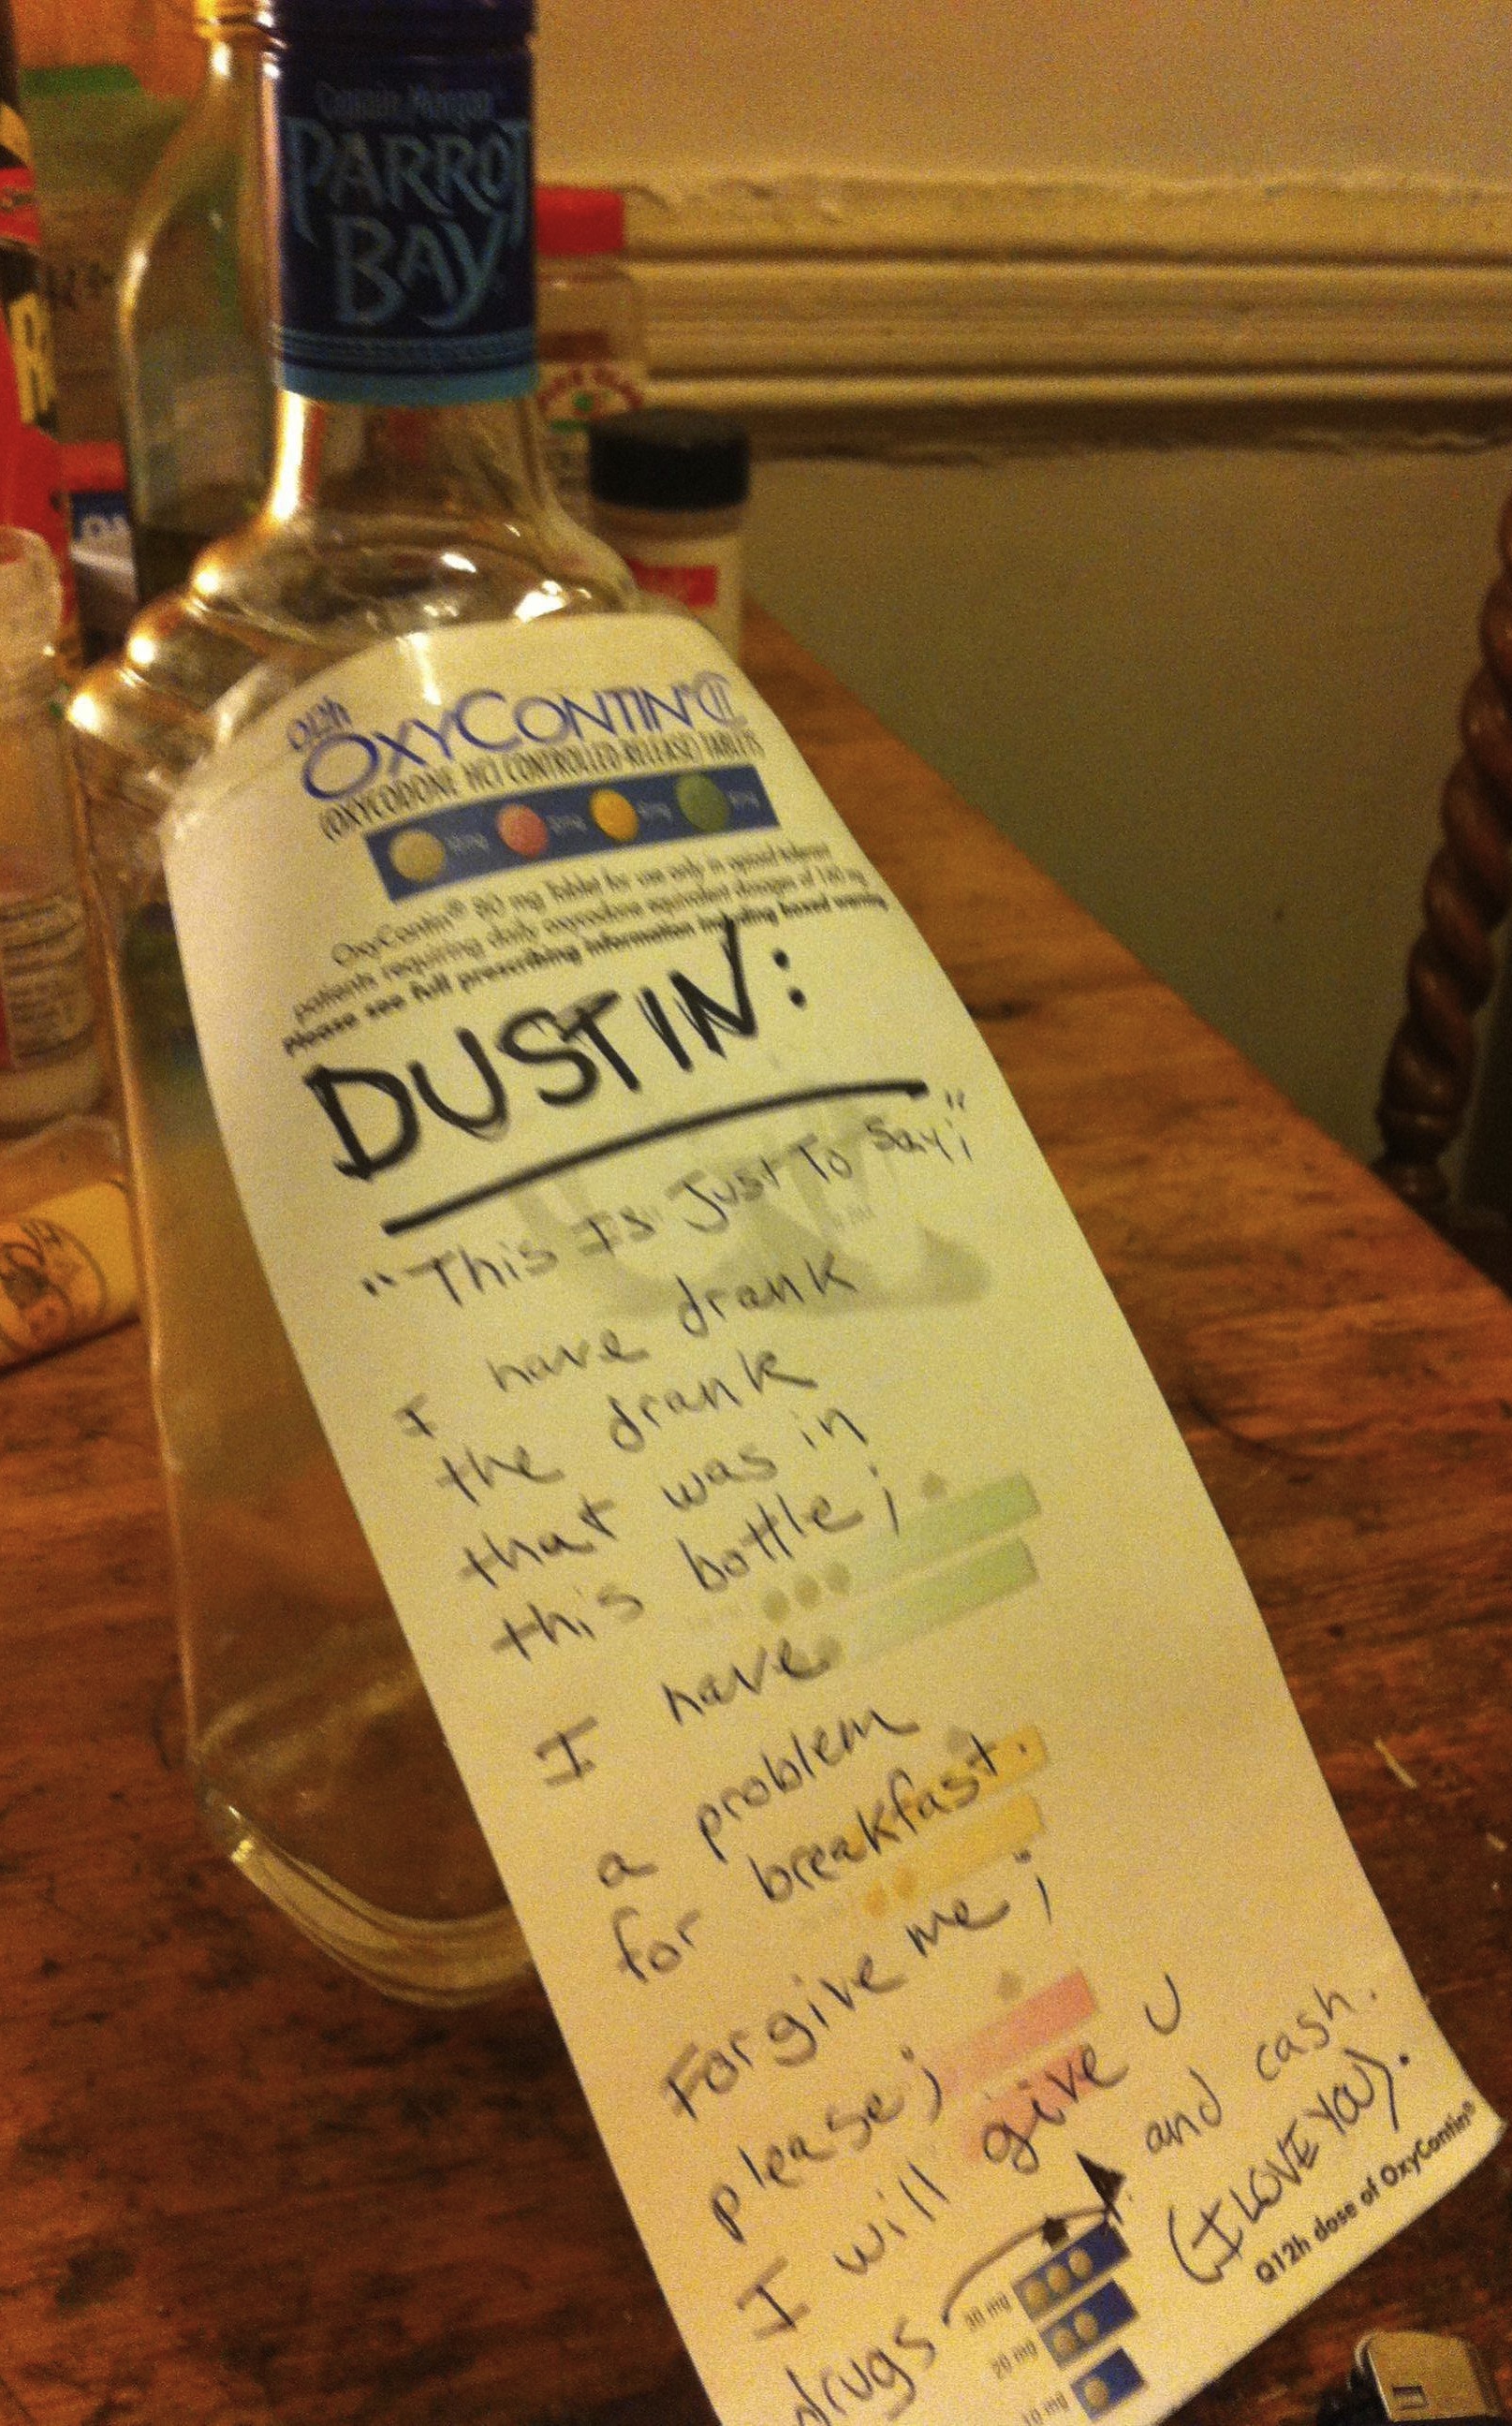 Captain Morgan
PARROT
BAY
Q12h
OXYCONTIN® CII
(OXYCODONE HCl CONTROLLED-RELEASE) TABLETS
OxyContin® 80 mg Tablet for use only in opioid tolerant
patients requiring daily oxycodone equivalent dosages of 160 mg
Please see full prescribing information including boxed warning
DUSTIN:
"This Is Just To Say";
I have drank
the drank
that was in
this bottle;
I have
a problem
for breakfast.
Forgive me;
please;
I will give U
drugs and cash.
(I LOVE YOU).
30 mg
20 mg
10 mg
Q12h dose of OxyContin®